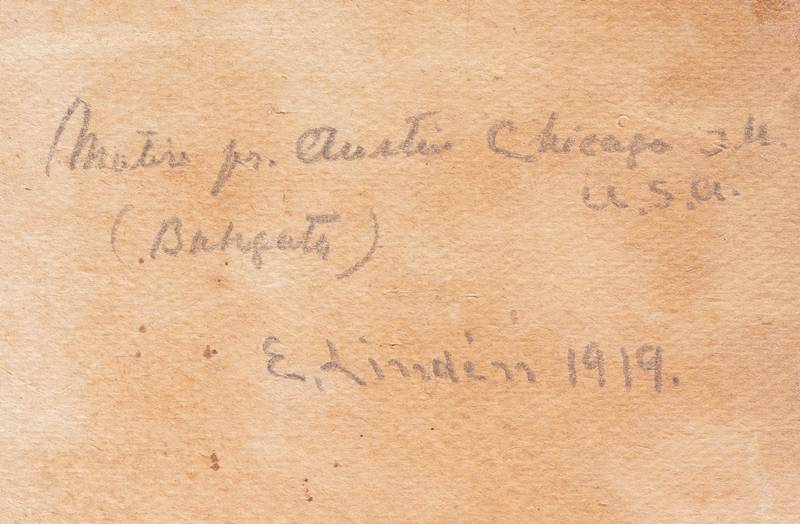 Motiv fr. Austin Chicago Ill.
U.S.A.
(Bakgata)
E. Lindén 1919.